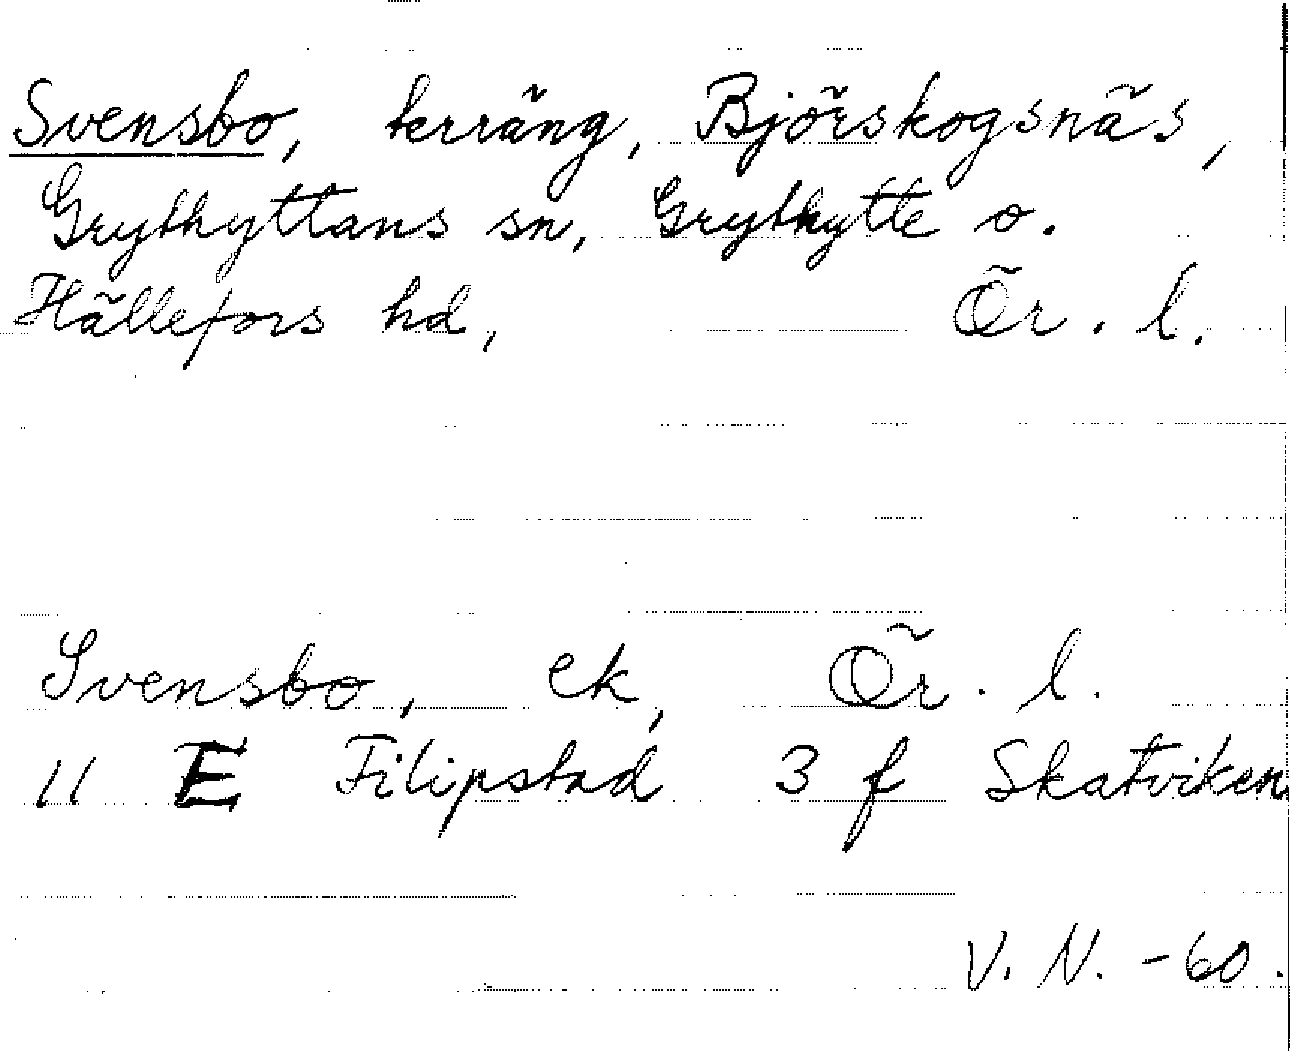 Svensbo, terräng, Björskogsnäs,
Grythyttans sn, Grythytte o.
Hällefors hd, Ör. l.
Svensbo, ek, Ör. l.
11 E Filipstad 3 f Skatviken
V. N. -60.